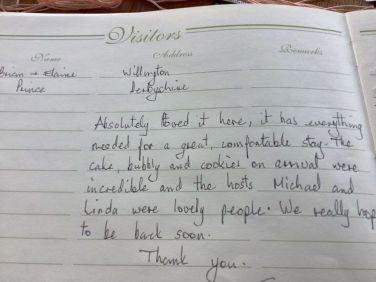 Visitors
Name Address Remarks
Brian + Elaine Willington
Prince Derbyshire
Absolutely loved it here, it has everything
needed for a great, comfortable stay. The
cake, bubbly and cookies on arrival were
incredible and the hosts Michael and
Linda were lovely people. We really hope
to be back soon.
Thank you.